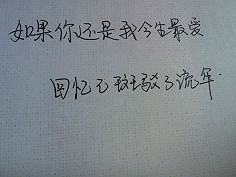 如果你还是我今生最爱
回忆已斑驳了流年.